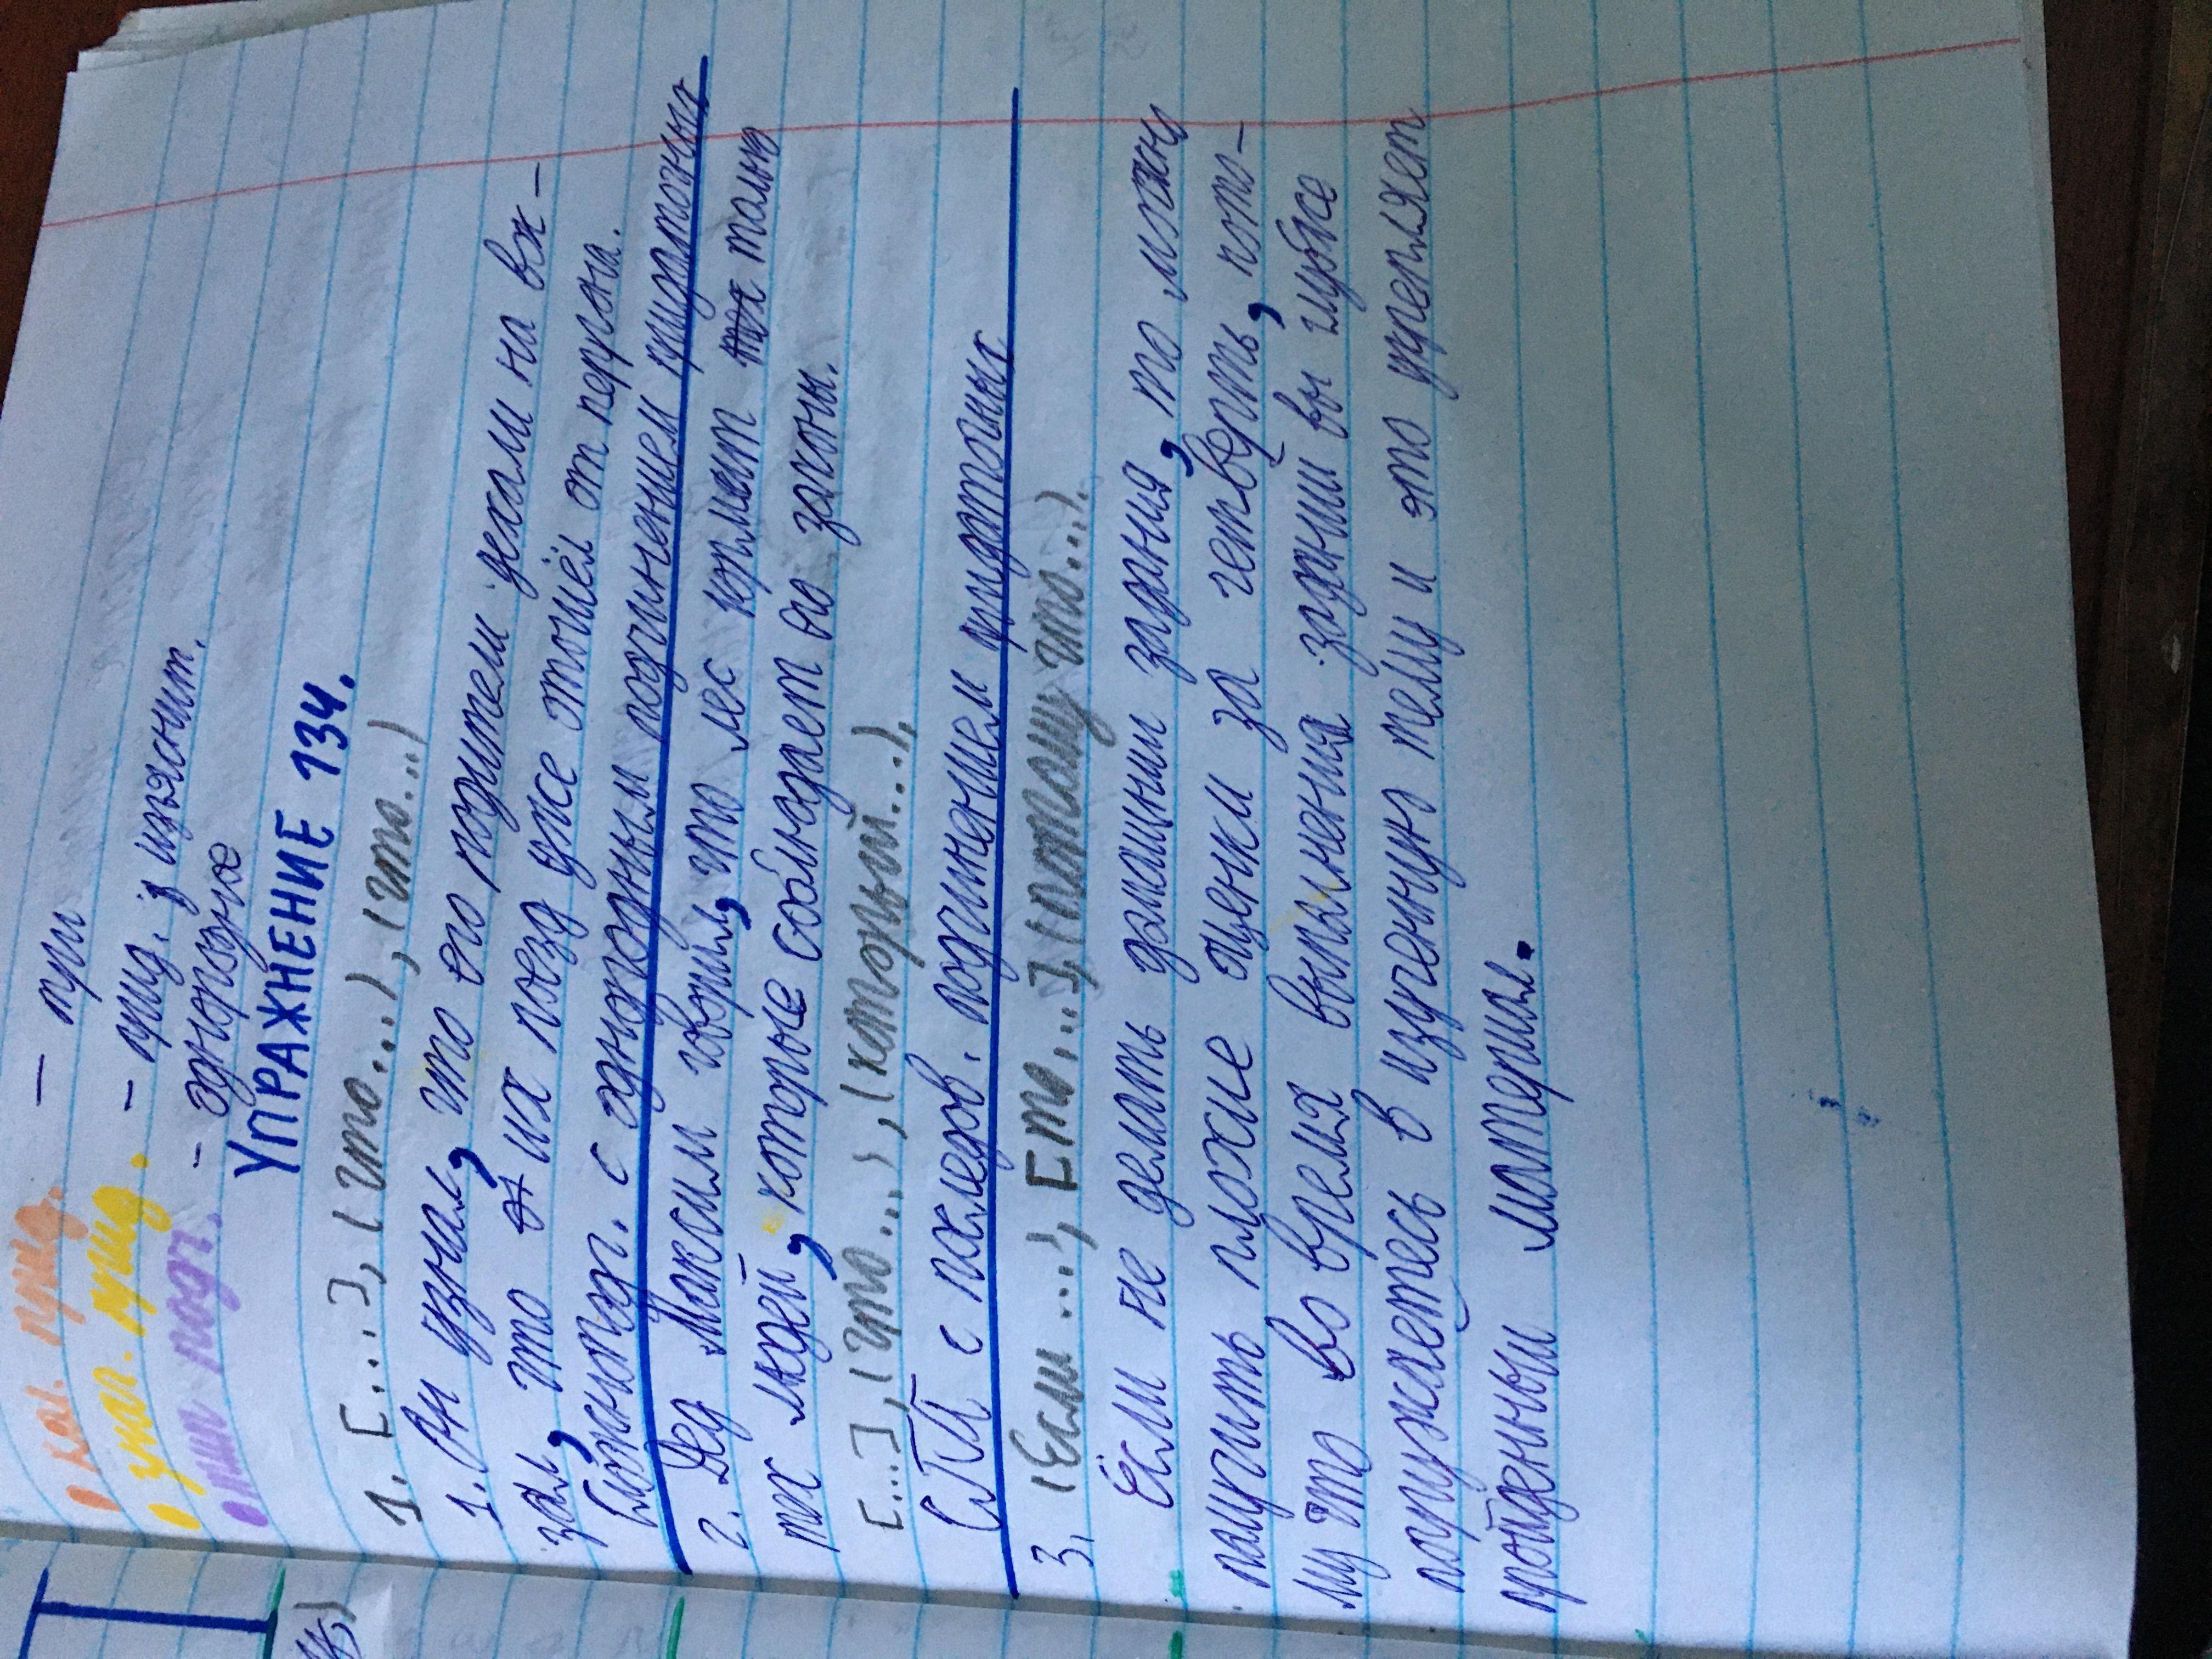 • кол. прид. – три
• указ. прид. – прид. изъяснит.
• тип подч. – однородное
УПРАЖНЕНИЕ 134.
1. [...], (что...), (что...)
1. Он узнал, что его родители уехали на вок-
зал, что их поезд уже отошёл от перрона.
с однородным подчинением придаточных
2. Дед Максим говорил, что лес кормит только
тех людей, которые соблюдает его законы.
[...], (что...), (который...).
СПП с последов. подчинением придаточных
3. (Если ...), [то...], (потому что...).
Если не делать домашнии задания, то можно
получить плохие оценки за четверть, пото-
му что во время выполнения задании вы глубже
погружаетесь в изученную тему и это укрепляет
пройденный материал.